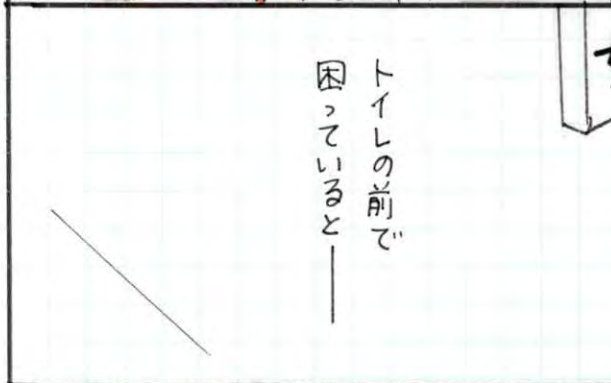 トイレの前で
困っていると――